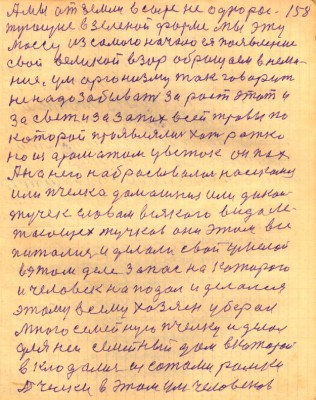 А мы от земли в сыне не однорос- 158
тующие в зеленой форме мы эту
массу из самого начала ея появление
свой великой взор обращаем внема
ния, ум организму так говорит
не надо забывать за рост этот и
за свет и за запах всей травы по
которой проявлялись хотя редко
но из ароматом цветок он пах
А на него набрасывалося насекомая
или пчелка домашняя или дикая
жучек словам всякого вида ле-
тающех жучков они этом все
питались и делали свой умелой
в этом деле запас на которого
и человек нападал и делался
этому всему хозяен уберал
много семейную пчелку и делал
для ней семейный дом в которой
вкладали из сотами рамки
Пчелки в этом ум человеков